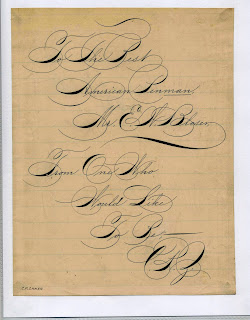 To The Best
American Penman
Mr. E. W. Bloser,
From One Who
Would Like
To Be—
C. P. Z.